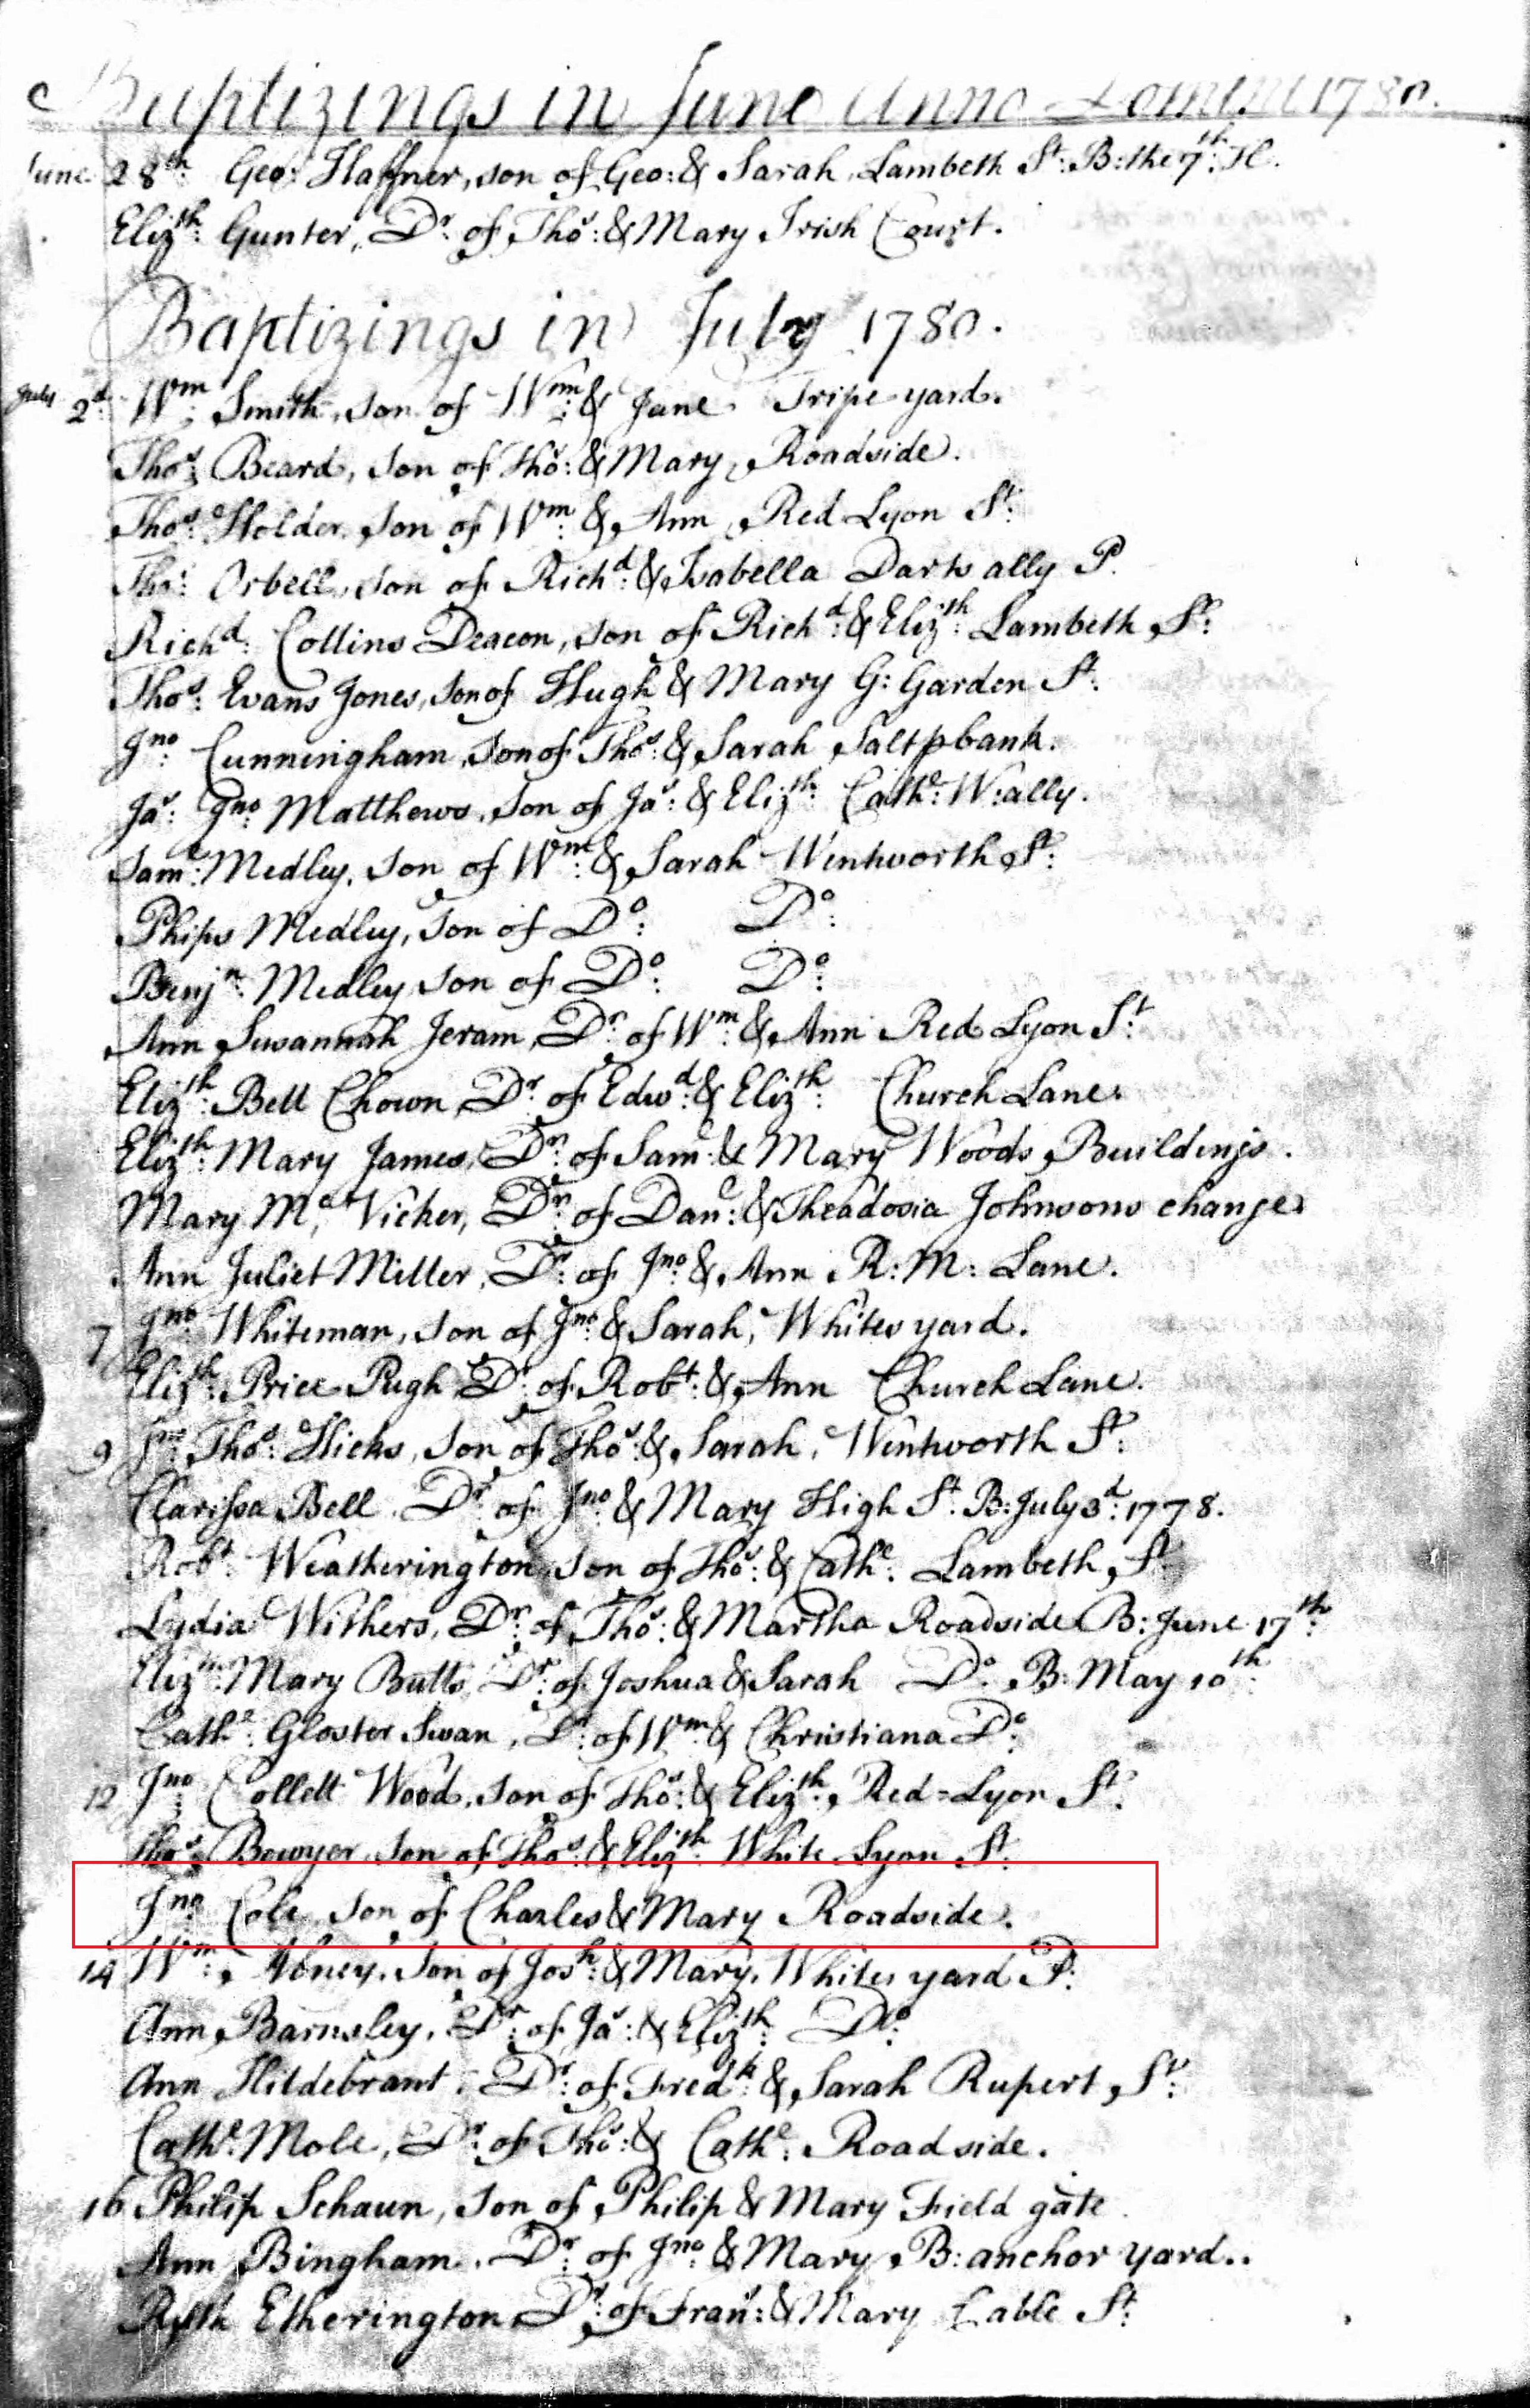 Baptizings in June Anno Domini 1780.
June 28th: Geo: Haffner, son of Geo: & Sarah, Lambeth St: B: the 7th: H.
Elizth: Gunter, Dr: of Thos: & Mary Irish Court.
Baptizings in July 1780.
July 2d: Wm: Smith, son of Wm: & Jane Tripe yard.
Thos: Beard, son of Thos: & Mary, Roadside.
Thos: Holder, son of Wm: & Ann, Red Lyon St:
Thos: Orbell, son of Richd: & Isabella Darks ally P.
Richd: Collins Deacon, son of Richd: & Elizth: Lambeth St:
Thos: Evans Jones, son of Hugh & Mary G: Garden St:
Jno: Cunningham, son of Thos: & Sarah Saltpbank.
Jas: Jno: Matthews, son of Jas: & Elizth: Cathe: W: ally.
Saml: Medley, son of Wm: & Sarah Wentworth St:
Phips Medley, son of Do: Do:
Benjn: Medley son of Do: Do:
Ann Susannah Jeram, Dr: of Wm: & Ann Red Lyon St:
Elizth: Bell Chown, Dr: of Edwd: & Elizth: Church Lane.
Elizth: Mary James, Dr: of Saml: & Mary Woods Buildings.
Mary Mc, Vicker, Dr: of Danl: & Theadosia Johnsons change
Ann Juliet Miller, Dr: of Jno: & Ann R: M: Lane.
7 Jno: Whiteman, son of Jno: & Sarah, Whites yard.
Elizth: Price Pugh Dr: of Robt: & Ann Church Lane.
9 Jno: Thos: Hicks, son of Thos: & Sarah, Wentworth St:
Clarissa Bell Dr: of Jno: & Mary High St: B: July 3d: 1778.
Robt: Weatherington son of Thos: & Cathe: Lambeth St:
Lydia Withers, Dr: of Thos: & Martha Roadside B: June 17th:
Elizth: Mary Butts, Dr: of Joshua & Sarah Do: B: May 10th:
Cathe: Gloster Swan, Dr: of Wm: & Christiana Do:
12 Jno: Collett Wood, son of Thos: & Elizth: Red=Lyon St:
Thos: Bowyer, son of Thos: & Elizth: White Lyon St:
Jno: Cole, son of Charles & Mary Roadside.
14 Wm: Abney, son of Josh: & Mary, Whites yard P:
Ann Barnsley, Dr: of Jas: & Elizth: Do:
Ann Hildebrant, Dr: of Fredk: & Sarah Rupert St:
Cathe: Mole, Dr: of Thos: & Cathe: Roadside.
16 Philip Schaun, son of Philip & Mary Field gate
Ann Bingham, Dr: of Jno: & Mary B: anchor yard..
Ruth Etherington Dr: of Frans: & Mary Cable St: